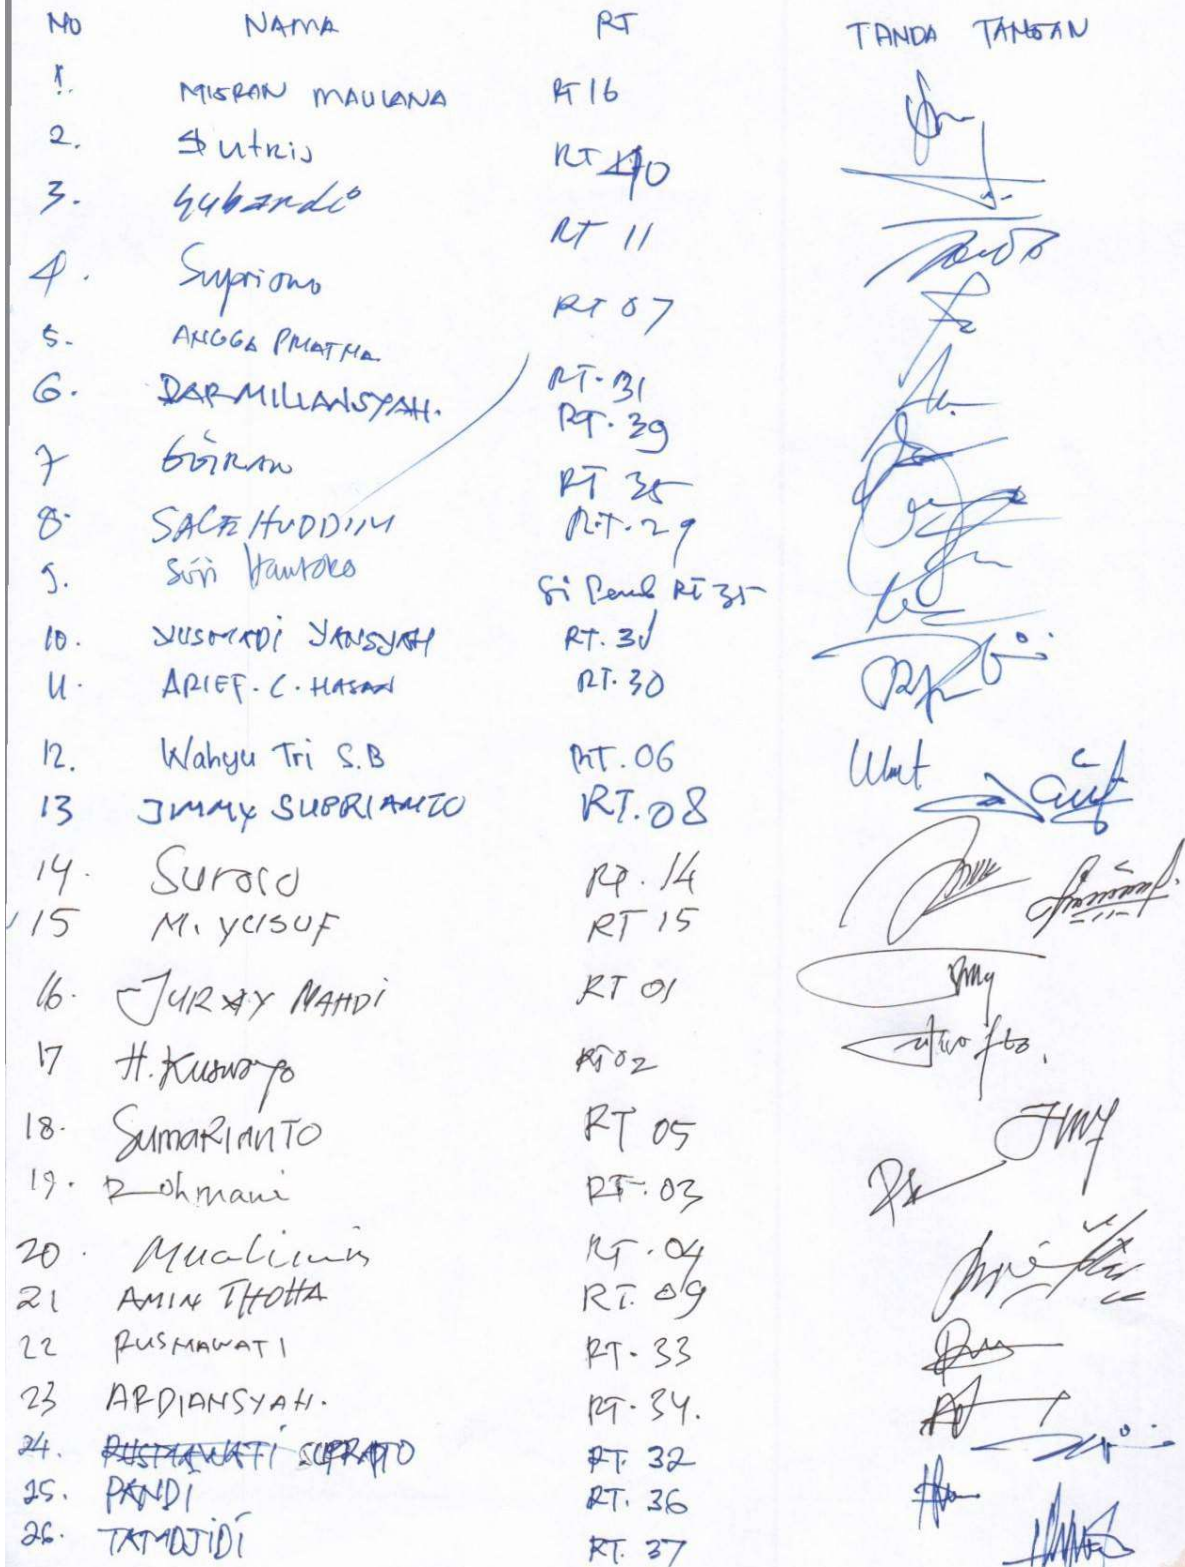 NO NAMA RT TANDA TANGAN
1. MISRAN MAULANA RT 16
2. Sutris RT 40
3. Subandi RT 11
4. Supriono RT 07
5. ANGGA PRATMA RT. 31
6. DARMILIANSYAH. RT. 39
7 RT 35
8. SALEHUDDIN RT. 29
9. RT 35
10. YUSMADI YANSYAH RT. 31
11. ARIEF. C. HASAN RT. 30
12. Wahyu Tri S.B RT. 06
13 JIMMY SUPRIANTO RT. 08
14. Suroso RT. 14
15 M. YUSUF RT 15
16. NAHDI RT 01
17 H. Kuswoyo RT 02
18. SUMARIANTO RT 05
19. Rohmani RT. 03
20. Mualimin RT. 04
21 AMIN THOHA RT. 09
22 RUSMAWATI RT. 33
23 ARDIANSYAH. RT. 34.
24. RUSMAWATI SUPRAPTO RT. 32
25. PANDI RT. 36
26. TAMDJIDI RT. 37